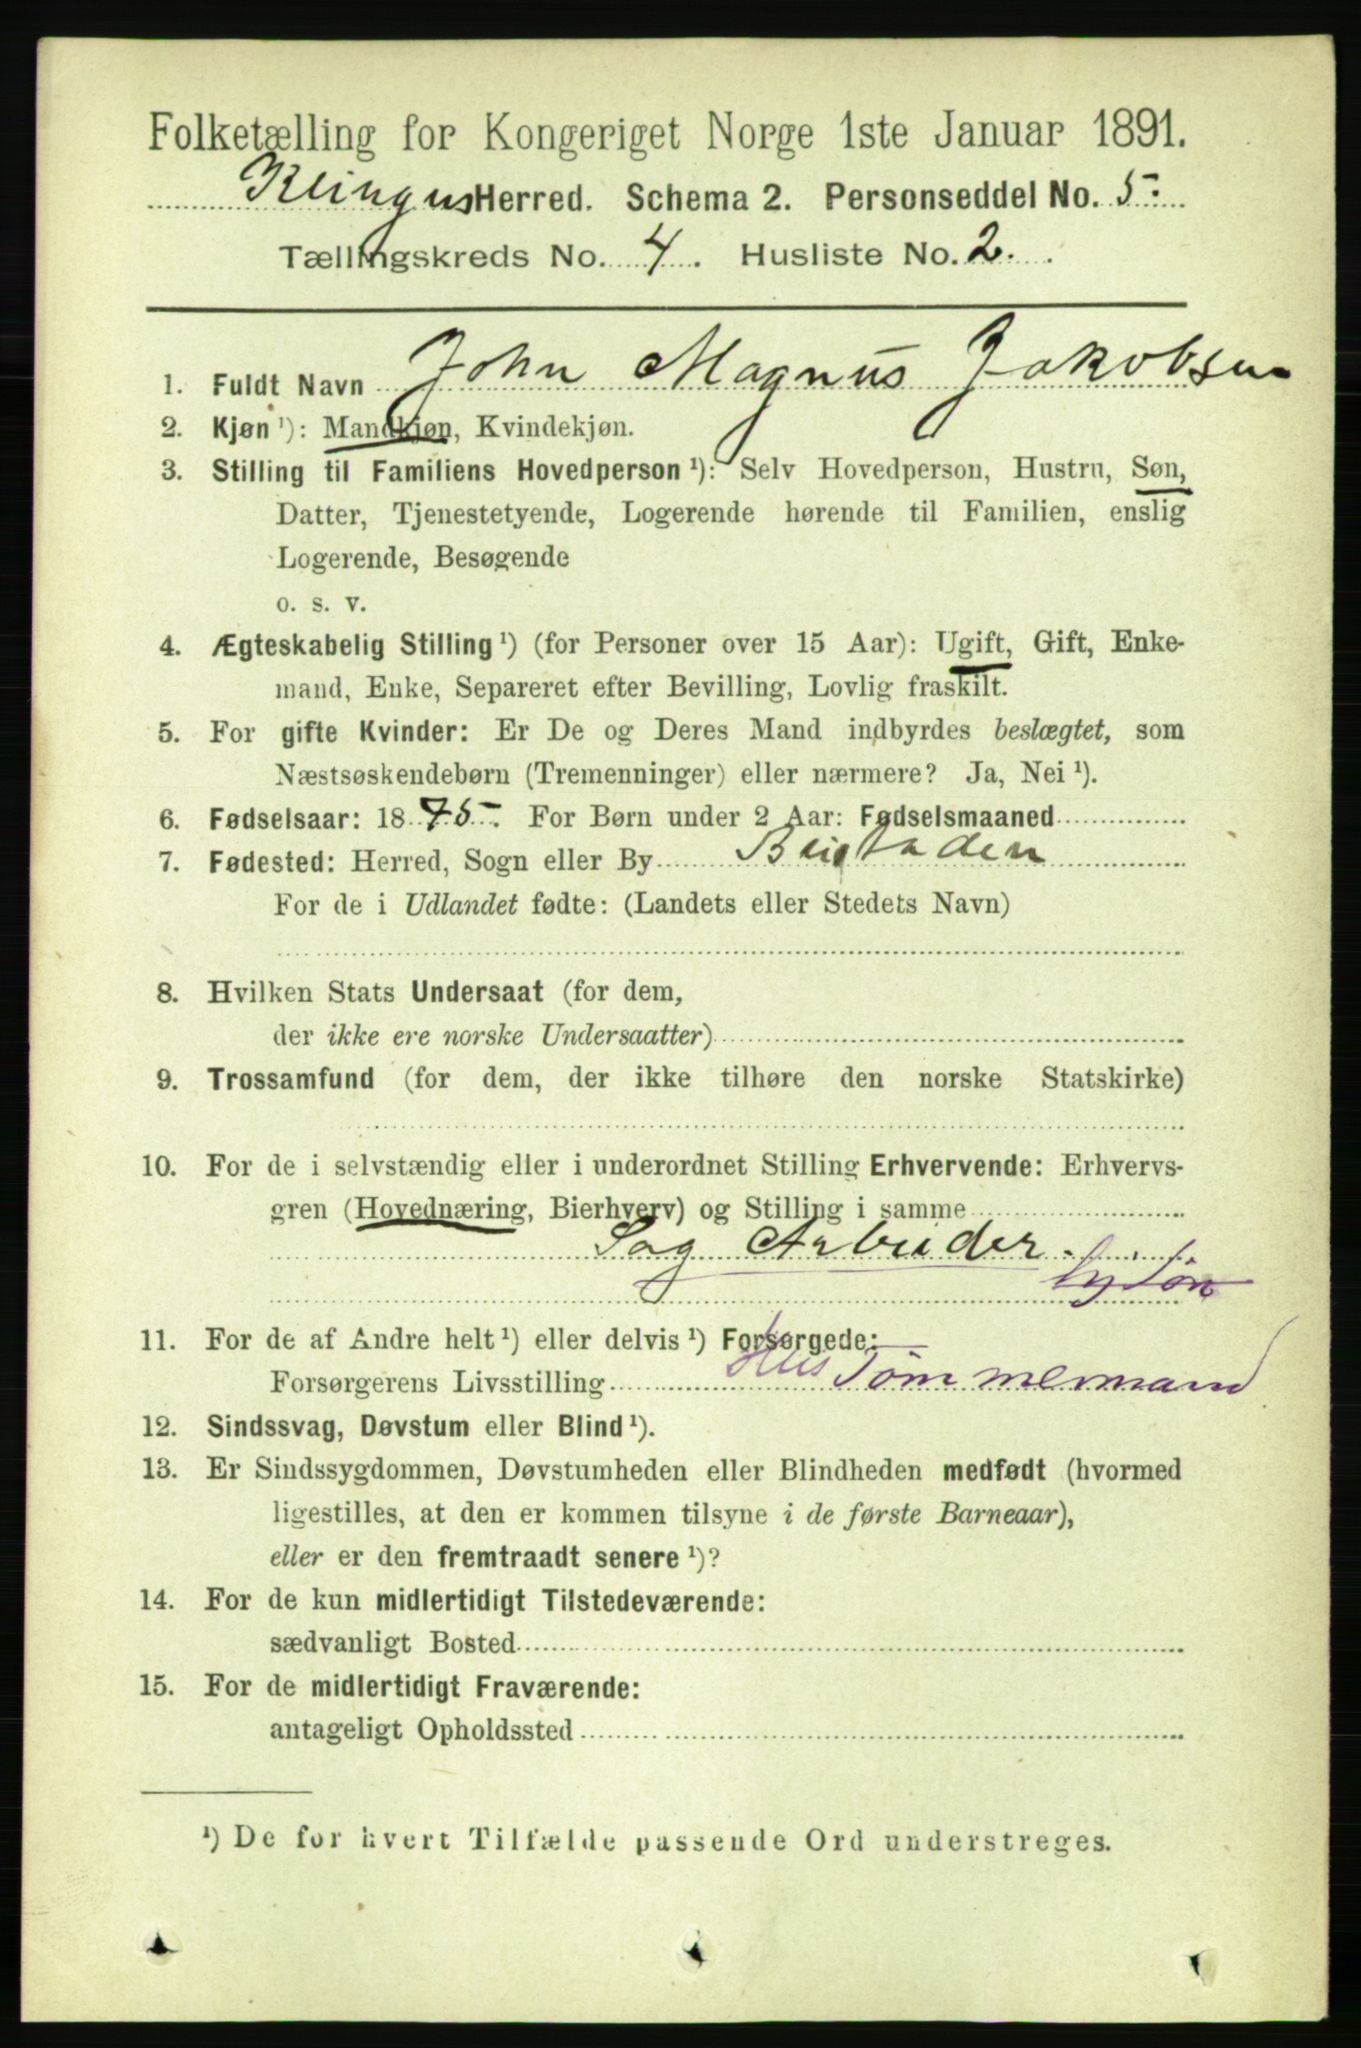 Folketælling for Kongeriget Norge 1ste Januar 1891.
Klingus Herred. Schema 2. Personseddel No. 5.
Tællingskreds No. 4. Husliste No. 2.
1. Fuldt Navn John Magnus Jakobsen
2. Kjøn ¹): Mandkjøn, Kvindekjøn.
3. Stilling til Familiens Hovedperson ¹): Selv Hovedperson, Hustru, Søn,
Datter, Tjenestetyende, Logerende hørende til Familien, enslig
Logerende, Besøgende
o. s. v.
4. Ægteskabelig Stilling ¹) (for Personer over 15 Aar): Ugift, Gift, Enke-
mand, Enke, Separeret efter Bevilling, Lovlig fraskilt.
5. For gifte Kvinder: Er De og Deres Mand indbyrdes beslægtet, som
Næstsøskendebørn (Tremenninger) eller nærmere? Ja, Nei ¹).
6. Fødselsaar: 1875. For Børn under 2 Aar: Fødselsmaaned
7. Fødested: Herred, Sogn eller By Beistaden
For de i Udlandet fødte: (Landets eller Stedets Navn)
8. Hvilken Stats Undersaat (for dem,
der ikke ere norske Undersaatter)
9. Trossamfund (for dem, der ikke tilhøre den norske Statskirke)
10. For de i selvstændig eller i underordnet Stilling Erhvervende: Erhvervs-
gren (Hovednæring, Bierhverv) og Stilling i samme
Sag Arbeider.
Søn
11. For de af Andre helt ¹) eller delvis ¹) Forsørgede:
Forsørgerens Livsstilling Hus Tømmermand
12. Sindssvag, Døvstum eller Blind ¹).
13. Er Sindssygdommen, Døvstumheden eller Blindheden medfødt (hvormed
ligestilles, at den er kommen tilsyne i de første Barneaar),
eller er den fremtraadt senere ¹)?
14. For de kun midlertidigt Tilstedeværende:
sædvanligt Bosted
15. For de midlertidigt Fraværende:
antageligt Opholdssted
¹) De for hvert Tilfælde passende Ord understreges.